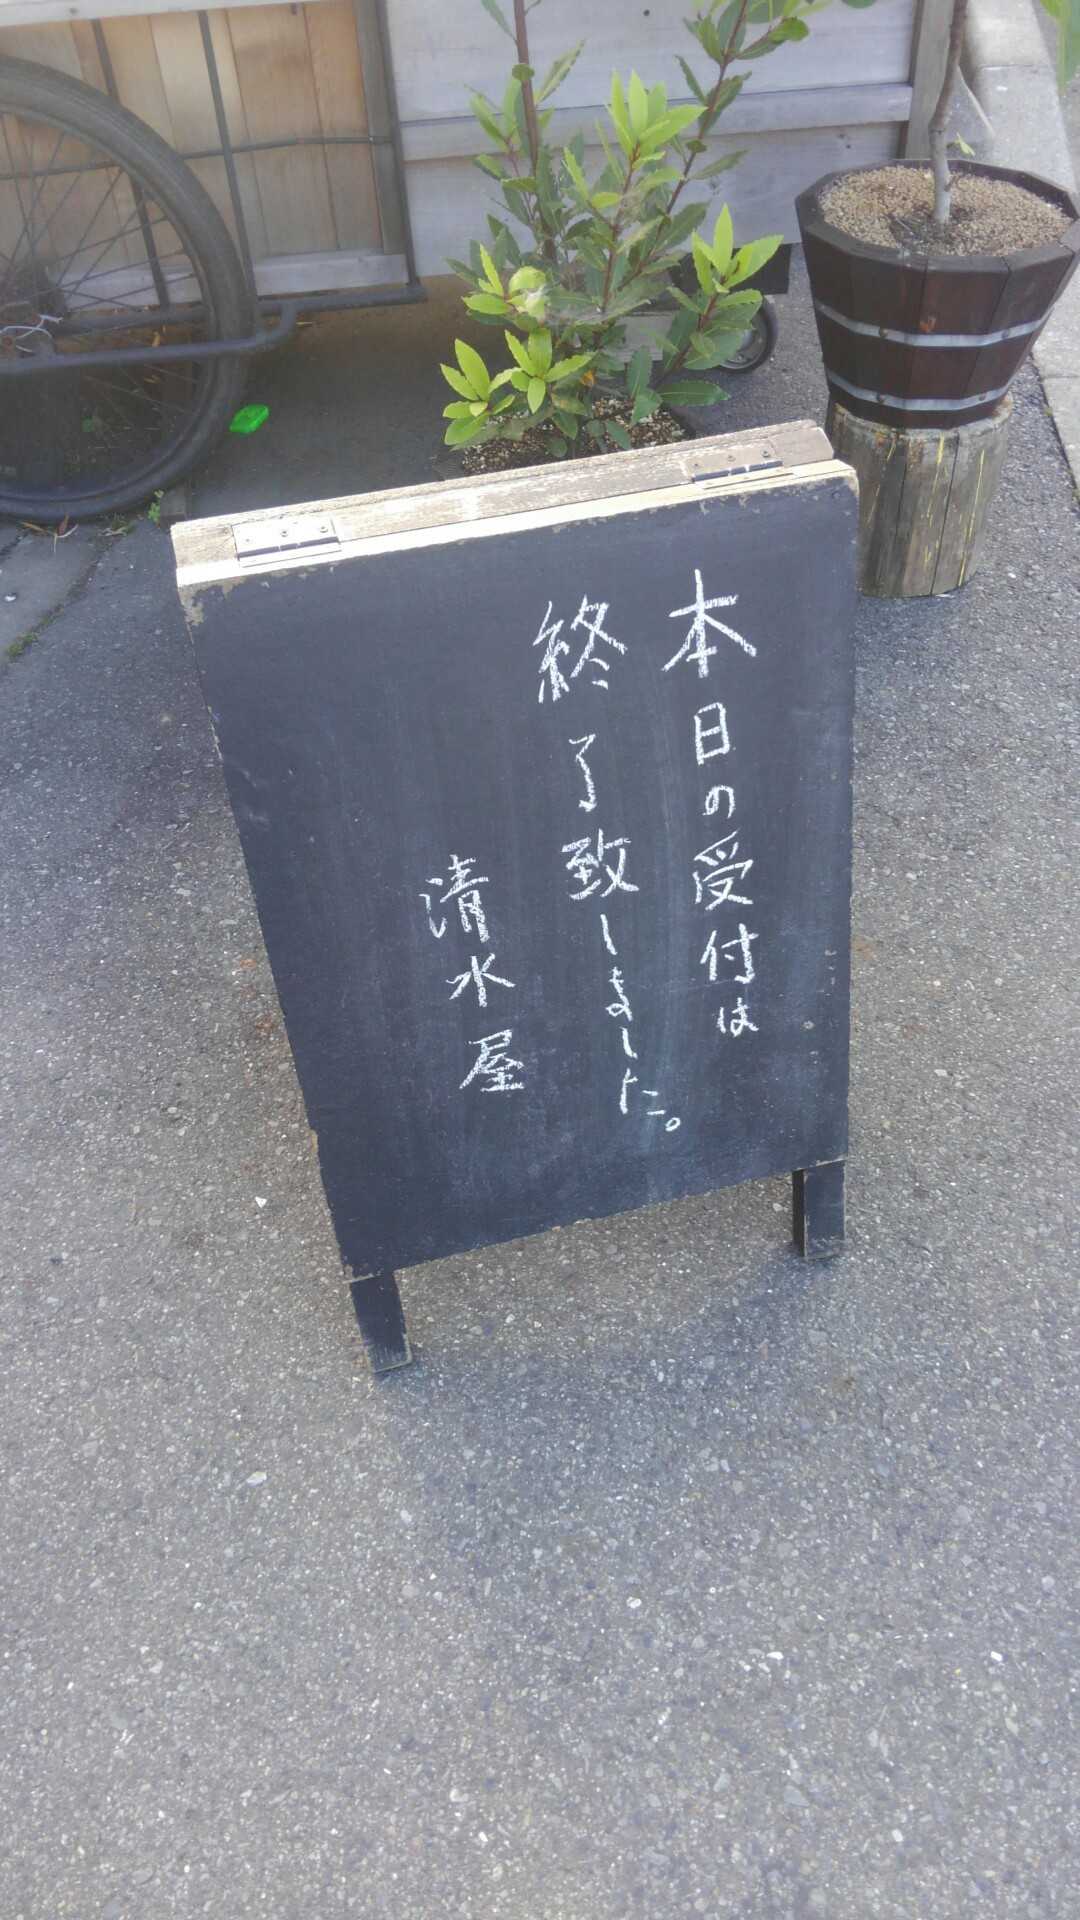 本日の受付は
終了致しました。
清水屋